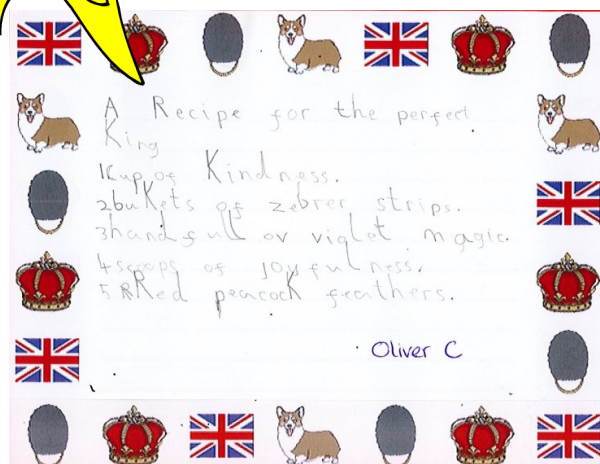 A Recipe for the perfect
King
1 Kup of Kindness.
2 buKets of zebrer strips.
3 handfull ov violet magic.
4 scoops of joyfulness.
5 Red peacocK feathers.
Oliver C